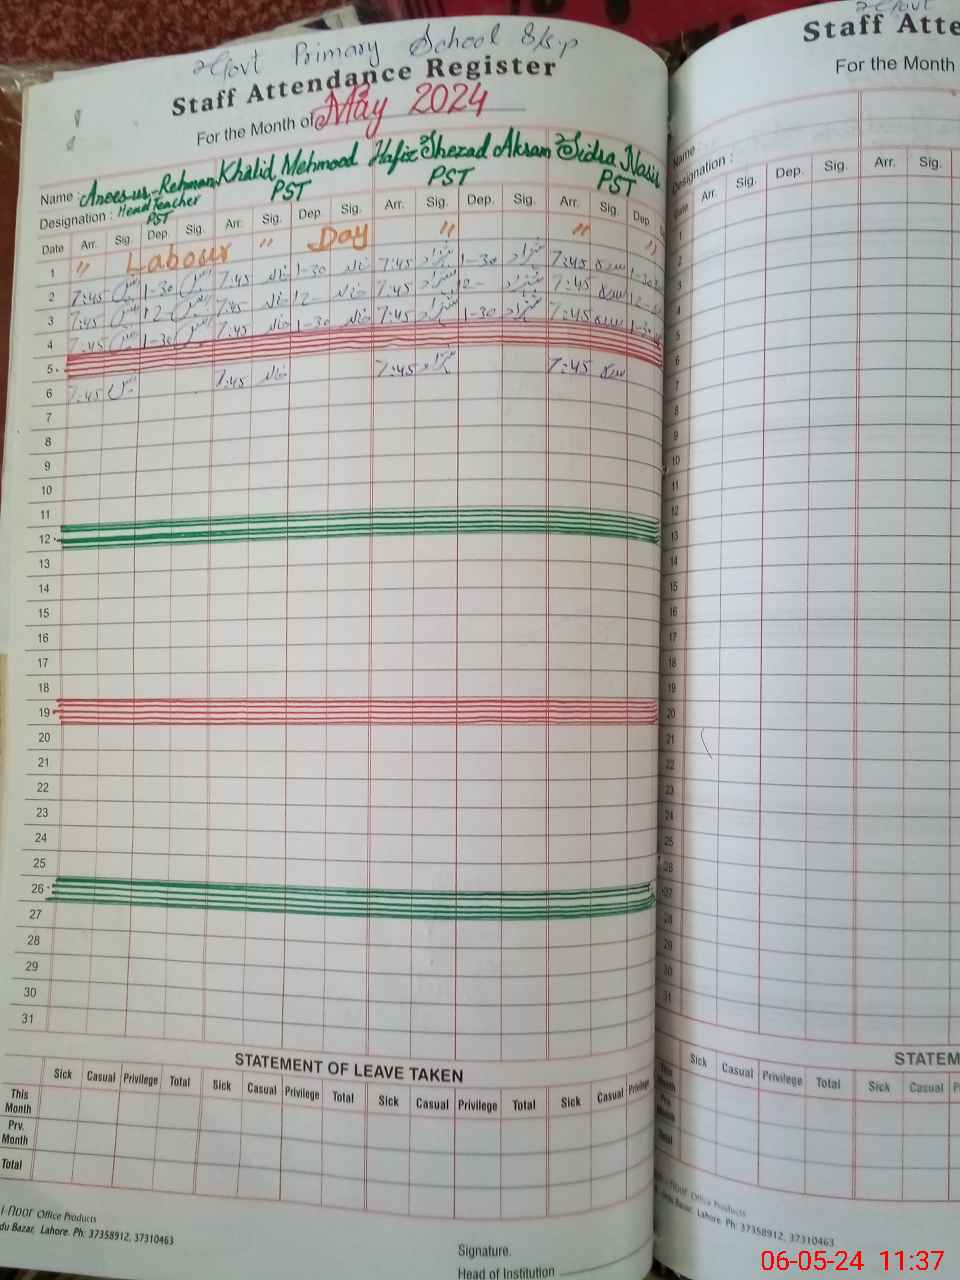 Govt Primary School S/k.p
Staff Attendance Register
For the Month of May 2024
Name : Anees-ur-Rehman Khalid Mehmood Hafiz Shezad Akram Sidra Nasir
Designation : Head Teacher PST PST PST
PST
Date Arr. Sig. Dep. Sig. Arr. Sig. Dep. Sig. Arr. Sig. Dep. Sig. Arr. Sig. Dep.
1 " Labour " Day " " "
2 7:45 1-30 7:45 خالد 1-30 خالد 7:45 شہزاد 1-30 شہزاد 7:45 سدرہ 1-30
3 7:45 12- 7:45 خالد 12- خالد 7:45 شہزاد 12- شہزاد 7:45 سدرہ 12-
4 7:45 1-30 7:45 خالد 1-30 خالد 7:45 شہزاد 1-30 شہزاد 7:45 سدرہ 1-30
5
6 7:45 7:45 خالد 7:45 شہزاد 7:45 سدرہ
7
8
9
10
11
12
13
14
15
16
17
18
19
20
21
22
23
24
25
26
27
28
29
30
31
STATEMENT OF LEAVE TAKEN
Sick Casual Privilege Total Sick Casual Privilege Total Sick Casual Privilege Total Sick Casual Privilege
This Month
Prv. Month
Total
Office Products
du Bazar, Lahore. Ph: 37358912, 37310463
Signature.
Head of Institution
Staff Atte
For the Month
Name :
Designation :
Date Arr. Sig. Dep. Sig. Arr. Sig.
1
2
3
4
5
6
7
8
9
10
11
12
13
14
15
16
17
18
19
20
21
22
23
24
25
26
27
28
29
30
31
STATEM
Sick Casual Privilege Total Sick Casual
This Month
Prv. Month
Total
Office Products
du Bazar, Lahore. Ph: 37358912, 37310463
06-05-24 11:37